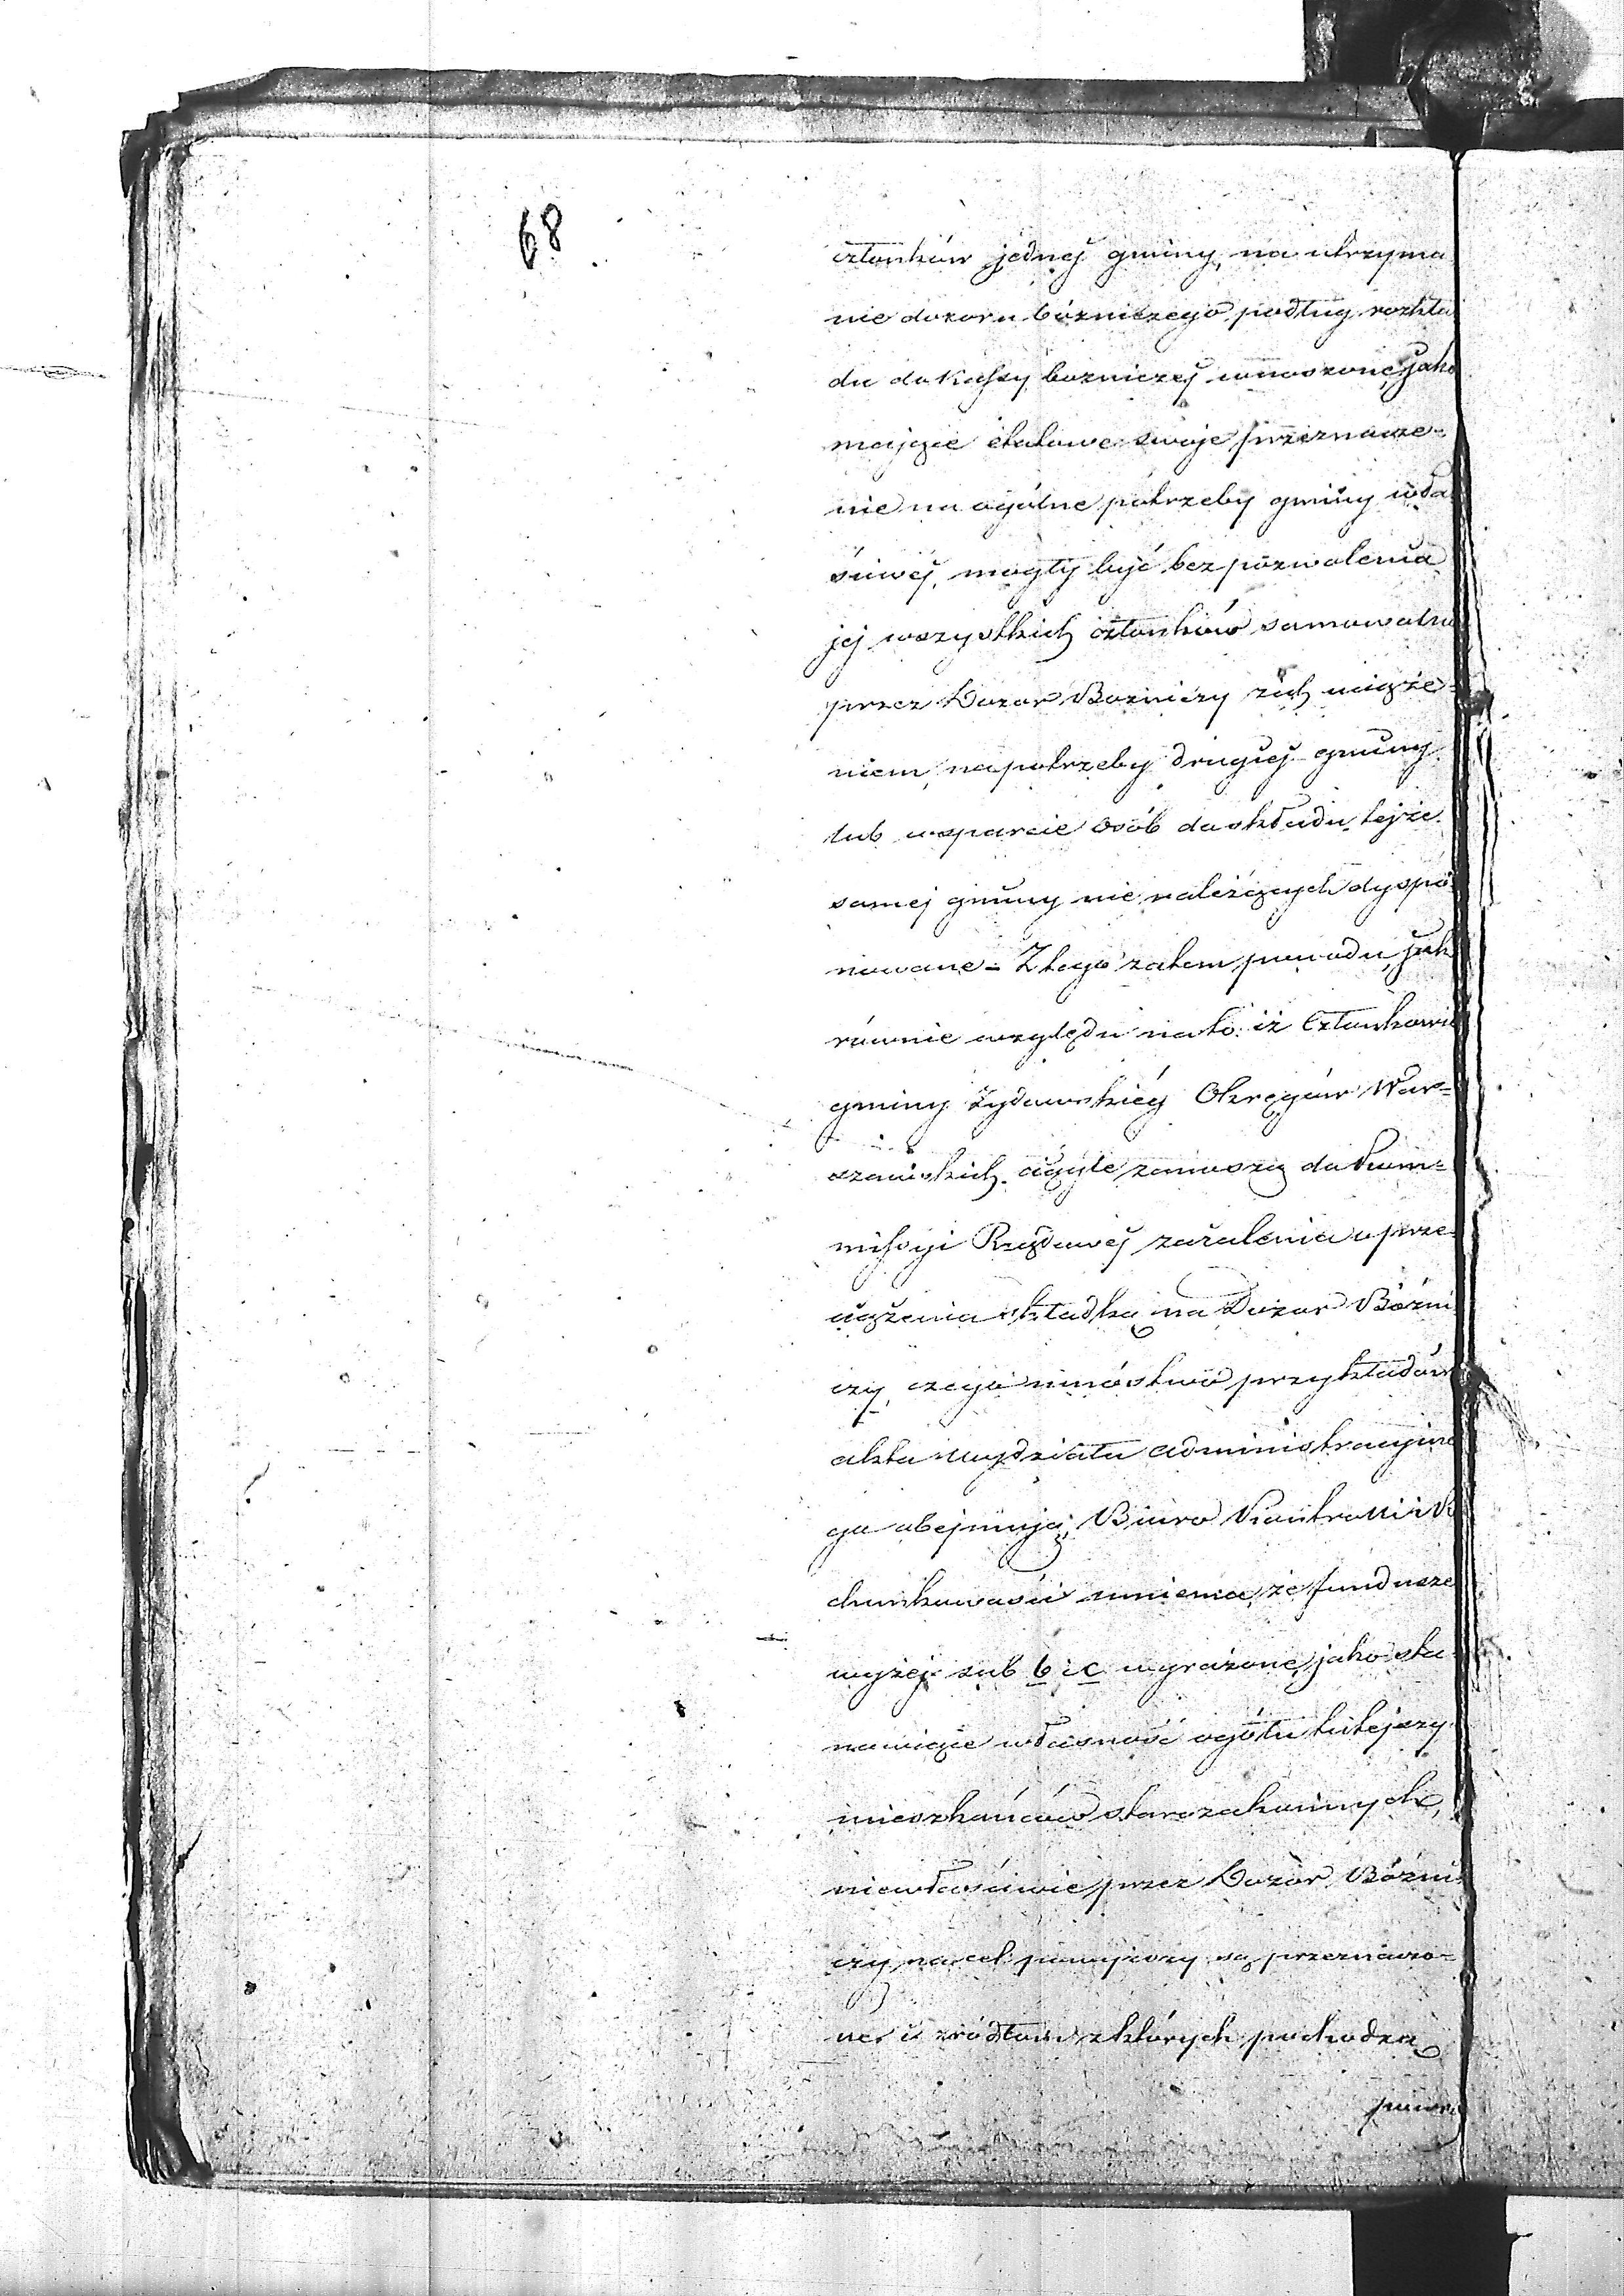 68
członków jednej gminy, na utrzyma
nie dozoru bózniczego podług rozkła
du do Kassy bozniczej wnoszone, jako
mające etatowe swoje przeznacze=
nie na ogólne potrzeby gminy wła
ściwéj, mogły być bez pozwolenia
jej wszystkich członków samowolnie
przez Dozor Bozniczy z ich uciąże=
niem, na potrzeby drugiej gminy
lub wsparcie osób do składu tejże
samej gminy nie należących dyspo
nowane – Z tego zatem powodu, jak
równie względu na to iż Członkowie
gminy żydowskiéj Okręgów War=
szawskich ciągle zanoszą do Kom=
missyi Rządowéj zażalenia o prze=
ciążenia składką na Dozor Bózni
czy, czego mnóstwo przykładów
akta Wydziału Administracyjne
go obejmują; Biuro Kontrolli i Ra
chunkowości mniema, że fundusze
wyżej sub b i c wyrażone, jako sta
nowiące własność ogółu tutejszy
mieszkańców starozakonnych,
niewłaściwie przez Dozór Bózni
czy na cel powyższy są przeznaczo=
ne, i źródłom z których pochodzą
powro